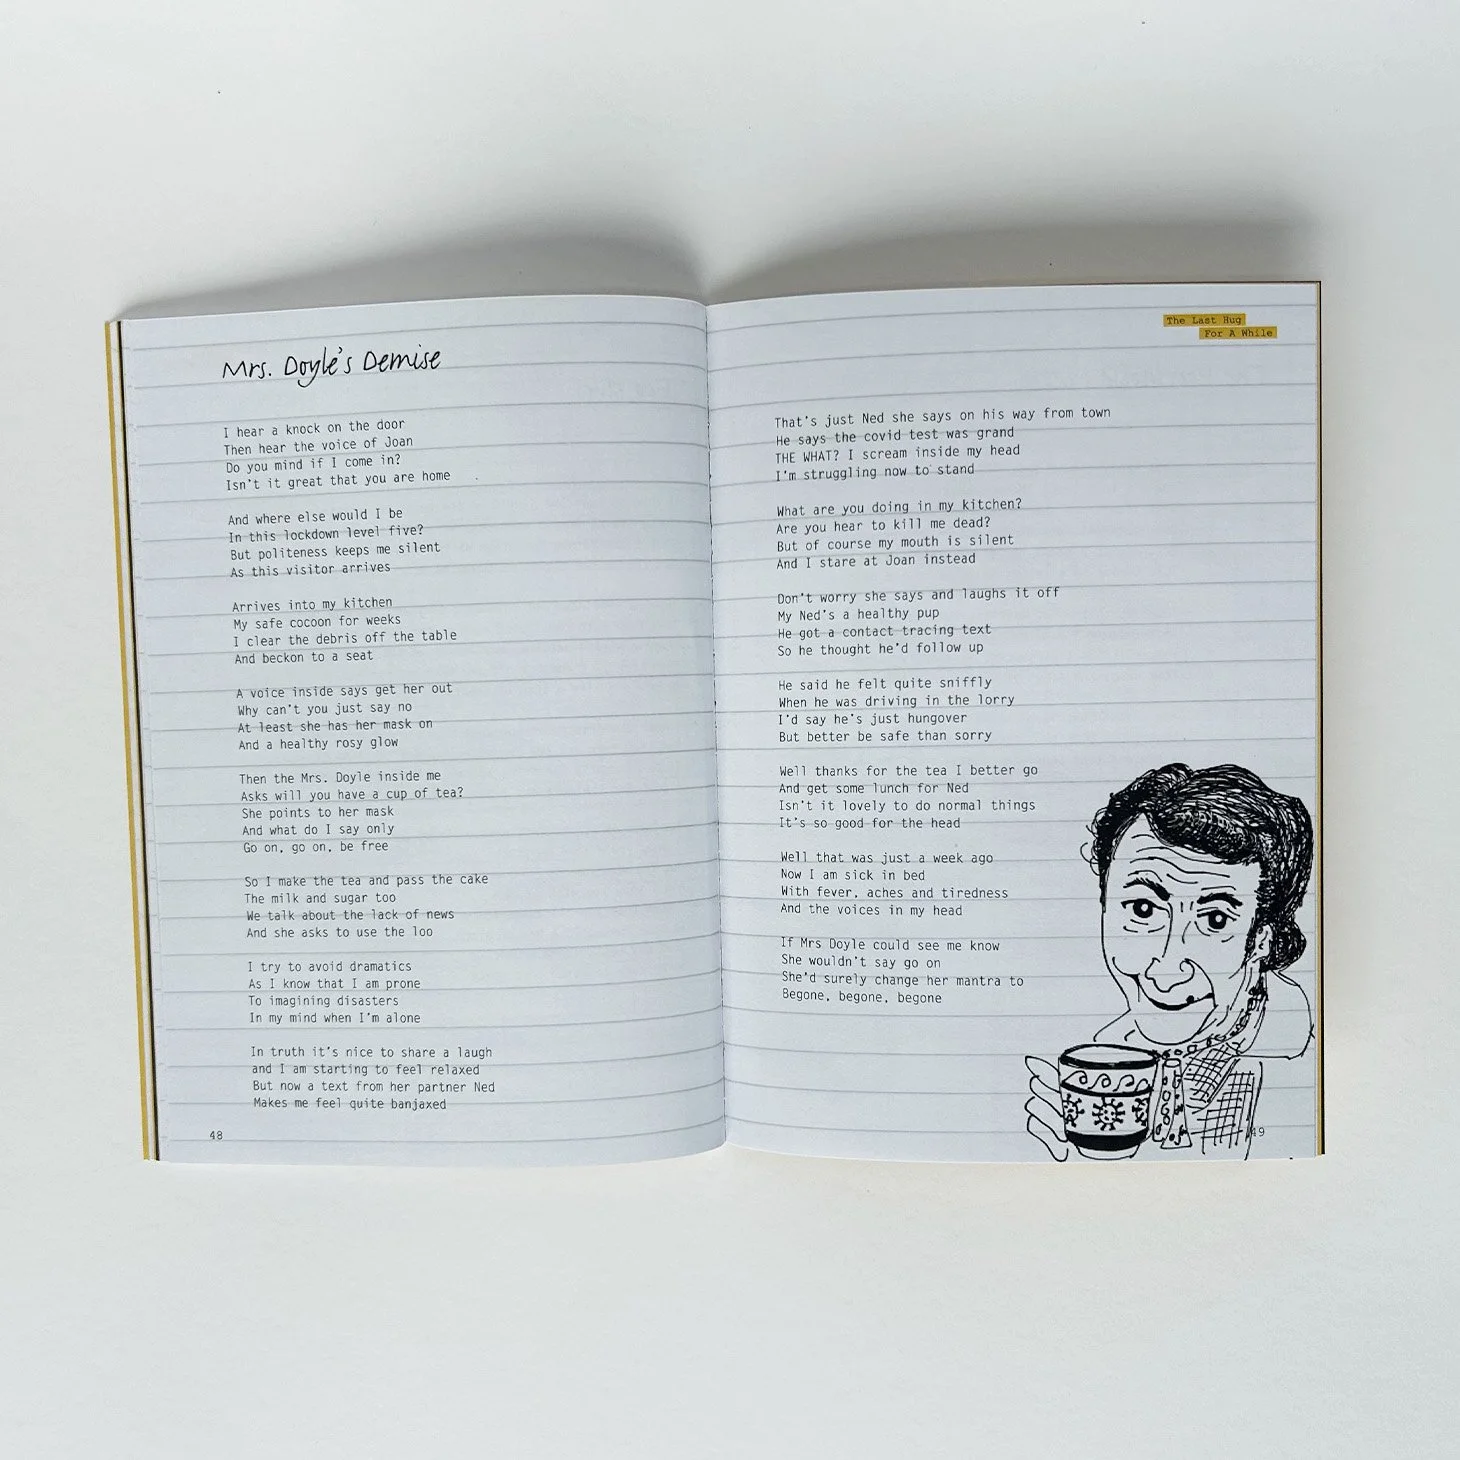 Mrs. Doyle's Demise
I hear a knock on the door
Then hear the voice of Joan
Do you mind if I come in?
Isn't it great that you are home
And where else would I be
In this lockdown level five?
But politeness keeps me silent
As this visitor arrives
Arrives into my kitchen
My safe cocoon for weeks
I clear the debris off the table
And beckon to a seat
A voice inside says get her out
Why can't you just say no
At least she has her mask on
And a healthy rosy glow
Then the Mrs. Doyle inside me
Asks will you have a cup of tea?
She points to her mask
And what do I say only
Go on, go on, be free
So I make the tea and pass the cake
The milk and sugar too
We talk about the lack of news
And she asks to use the loo
I try to avoid dramatics
As I know that I am prone
To imagining disasters
In my mind when I'm alone
In truth it's nice to share a laugh
and I am starting to feel relaxed
But now a text from her partner Ned
Makes me feel quite banjaxed
48
The Last Hug
For A While
That's just Ned she says on his way from town
He says the covid test was grand
THE WHAT? I scream inside my head
I'm struggling now to stand
What are you doing in my kitchen?
Are you hear to kill me dead?
But of course my mouth is silent
And I stare at Joan instead
Don't worry she says and laughs it off
My Ned's a healthy pup
He got a contact tracing text
So he thought he'd follow up
He said he felt quite sniffly
When he was driving in the lorry
I'd say he's just hungover
But better be safe than sorry
Well thanks for the tea I better go
And get some lunch for Ned
Isn't it lovely to do normal things
It's so good for the head
Well that was just a week ago
Now I am sick in bed
With fever, aches and tiredness
And the voices in my head
If Mrs Doyle could see me know
She wouldn't say go on
She'd surely change her mantra to
Begone, begone, begone
49